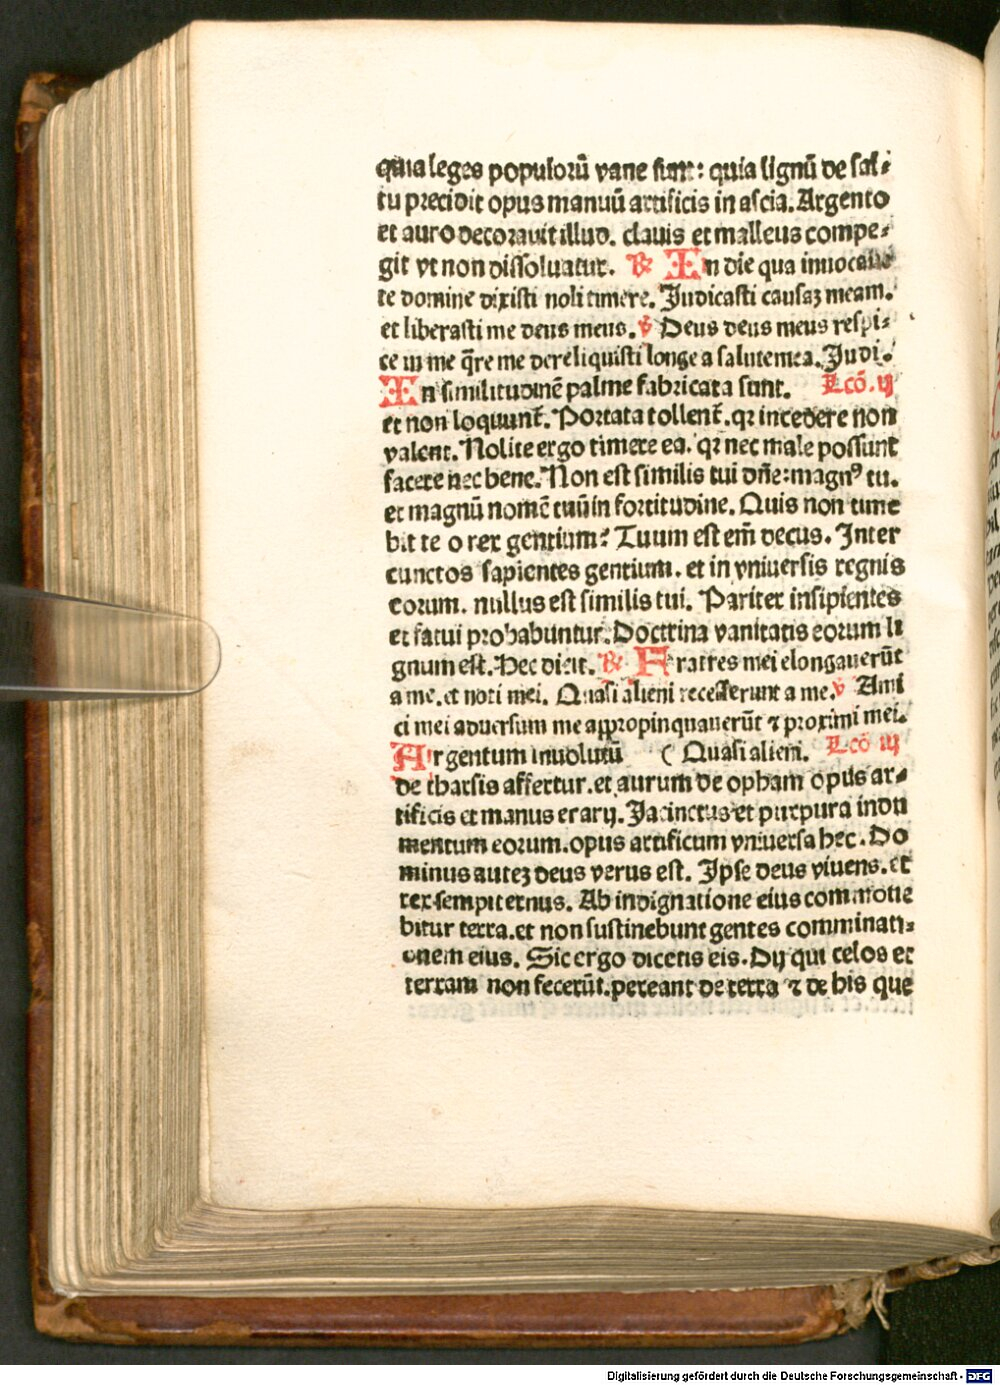 quia leges populorū vane sunt: quia lignū de sal⸗
tu precidit opus manuū artificis in ascia. Argento
et auro decorauit illud. clauis et malleus compe⸗
git vt non dissoluatur. ℟ In die qua inuocaui
te domine dixisti noli timere. Judicasti causaꝫ meam.
et liberasti me deus meus. ℣ Deus deus meus respi⸗
ce in me q̄re me dereliquisti longe a salute mea. Judi.
In similitudinē palme fabricata sunt. Lcō. ij
et non loquunt̄. Portata tollent̄. qꝛ incedere non
valent. Nolite ergo timere ea. qꝛ nec male possunt
facere nec bene. Non est similis tui dn̄e: magnꝰ tu.
et magnū nomē tuū in fortitudine. Quis non time
bit te o rex gentium? Tuum est em̄ decus. Inter
cunctos sapientes gentium. et in vniuersis regnis
eorum. nullus est similis tui. Pariter insipientes
et fatui probabuntur. Doctrina vanitatis eorum li
gnum est. Hec dicit. ℟ Fratres mei elongauerūt
a me. et noti mei. Quasi alieni recesserunt a me. ℣ Ami
ci mei aduersum me appropinquauerūt ⁊ proximi mei.
Argentum inuolutū ( Quasi alieni. Lcō iij
de tharsis affertur. et aurum de opham opus ar⸗
tificis et manus erarij. Jacinctus et purpura indu
mentum eorum. opus artificum vniuersa hec. Do
minus auteꝫ deus verus est. Ipse deus viuens. et
rex sempiternus. Ab indignatione eius commoue
bitur terra. et non sustinebunt gentes comminati⸗
onem eius. Sic ergo dicetis eis. Dij qui celos et
terram non fecerūt. pereant de terra ⁊ de his que
Digitalisierung gefördert durch die Deutsche Forschungsgemeinschaft - DFG